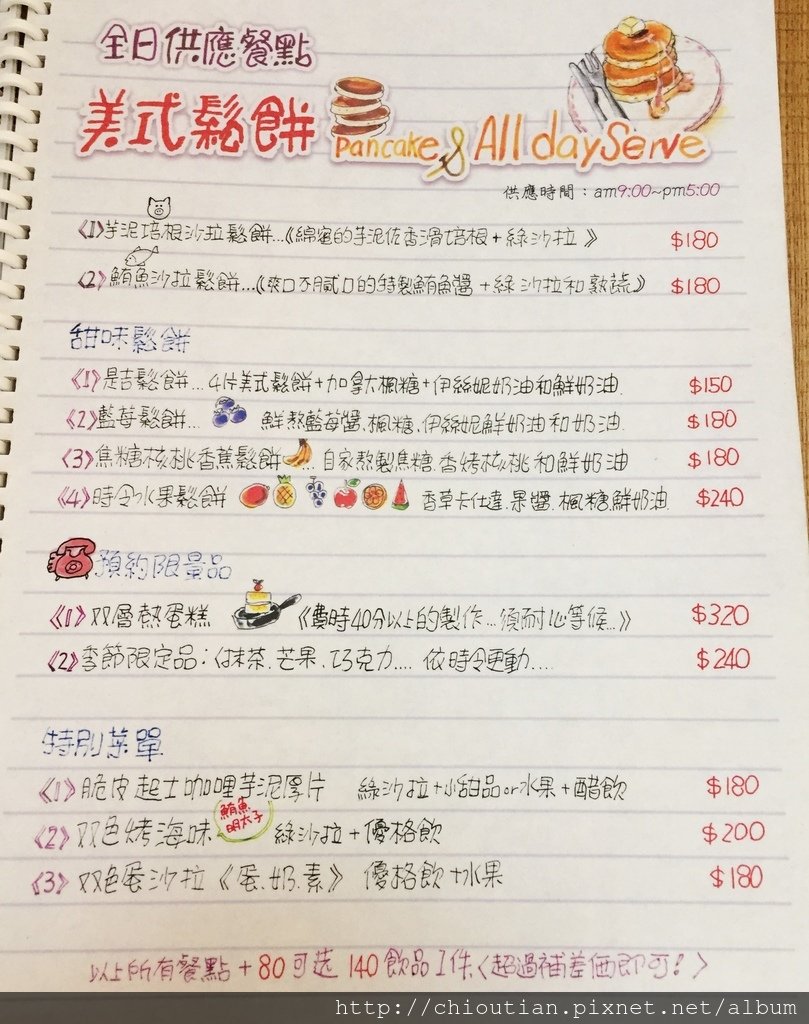 全日供應餐點
美式鬆餅 Pancake & All day Serve
供應時間：am9:00~pm5:00
《1》芋泥培根沙拉鬆餅...《綿蜜的芋泥佐香滑培根+綠沙拉》 $180
《2》鮪魚沙拉鬆餅...《爽口不膩口的特製鮪魚醬+綠沙拉和熟蔬》 $180
甜味鬆餅
《1》是吉鬆餅...4片美式鬆餅+加拿大楓糖+伊絲妮奶油和鮮奶油. $150
《2》藍莓鬆餅... 鮮熬藍莓醬、楓糖、伊絲妮鮮奶油和奶油. $180
《3》焦糖核桃香蕉鬆餅... 自家熬製焦糖.香烤核桃和鮮奶油 $180
《4》時令水果鬆餅 香草卡仕達.果醬.楓糖.鮮奶油. $240
預約限量品
《1》双層熱蛋糕 《費時40分以上的製作...須耐心等候...》 $320
《2》季節限定品：《抹茶.芒果.巧克力.... 依時令更動.... $240
特別菜單
《1》脆皮起士咖哩芋泥厚片 綠沙拉+小甜品or水果+醋飲 $180
《2》双色烤海味 鮪魚 明太子 綠沙拉+優格飲 $200
《3》双色蛋沙拉《蛋.奶.素》 優格飲+水果 $180
以上所有餐點+80可选140飲品1件〈超過補差価即可！〉
http://chioutian.pixnet.net/album